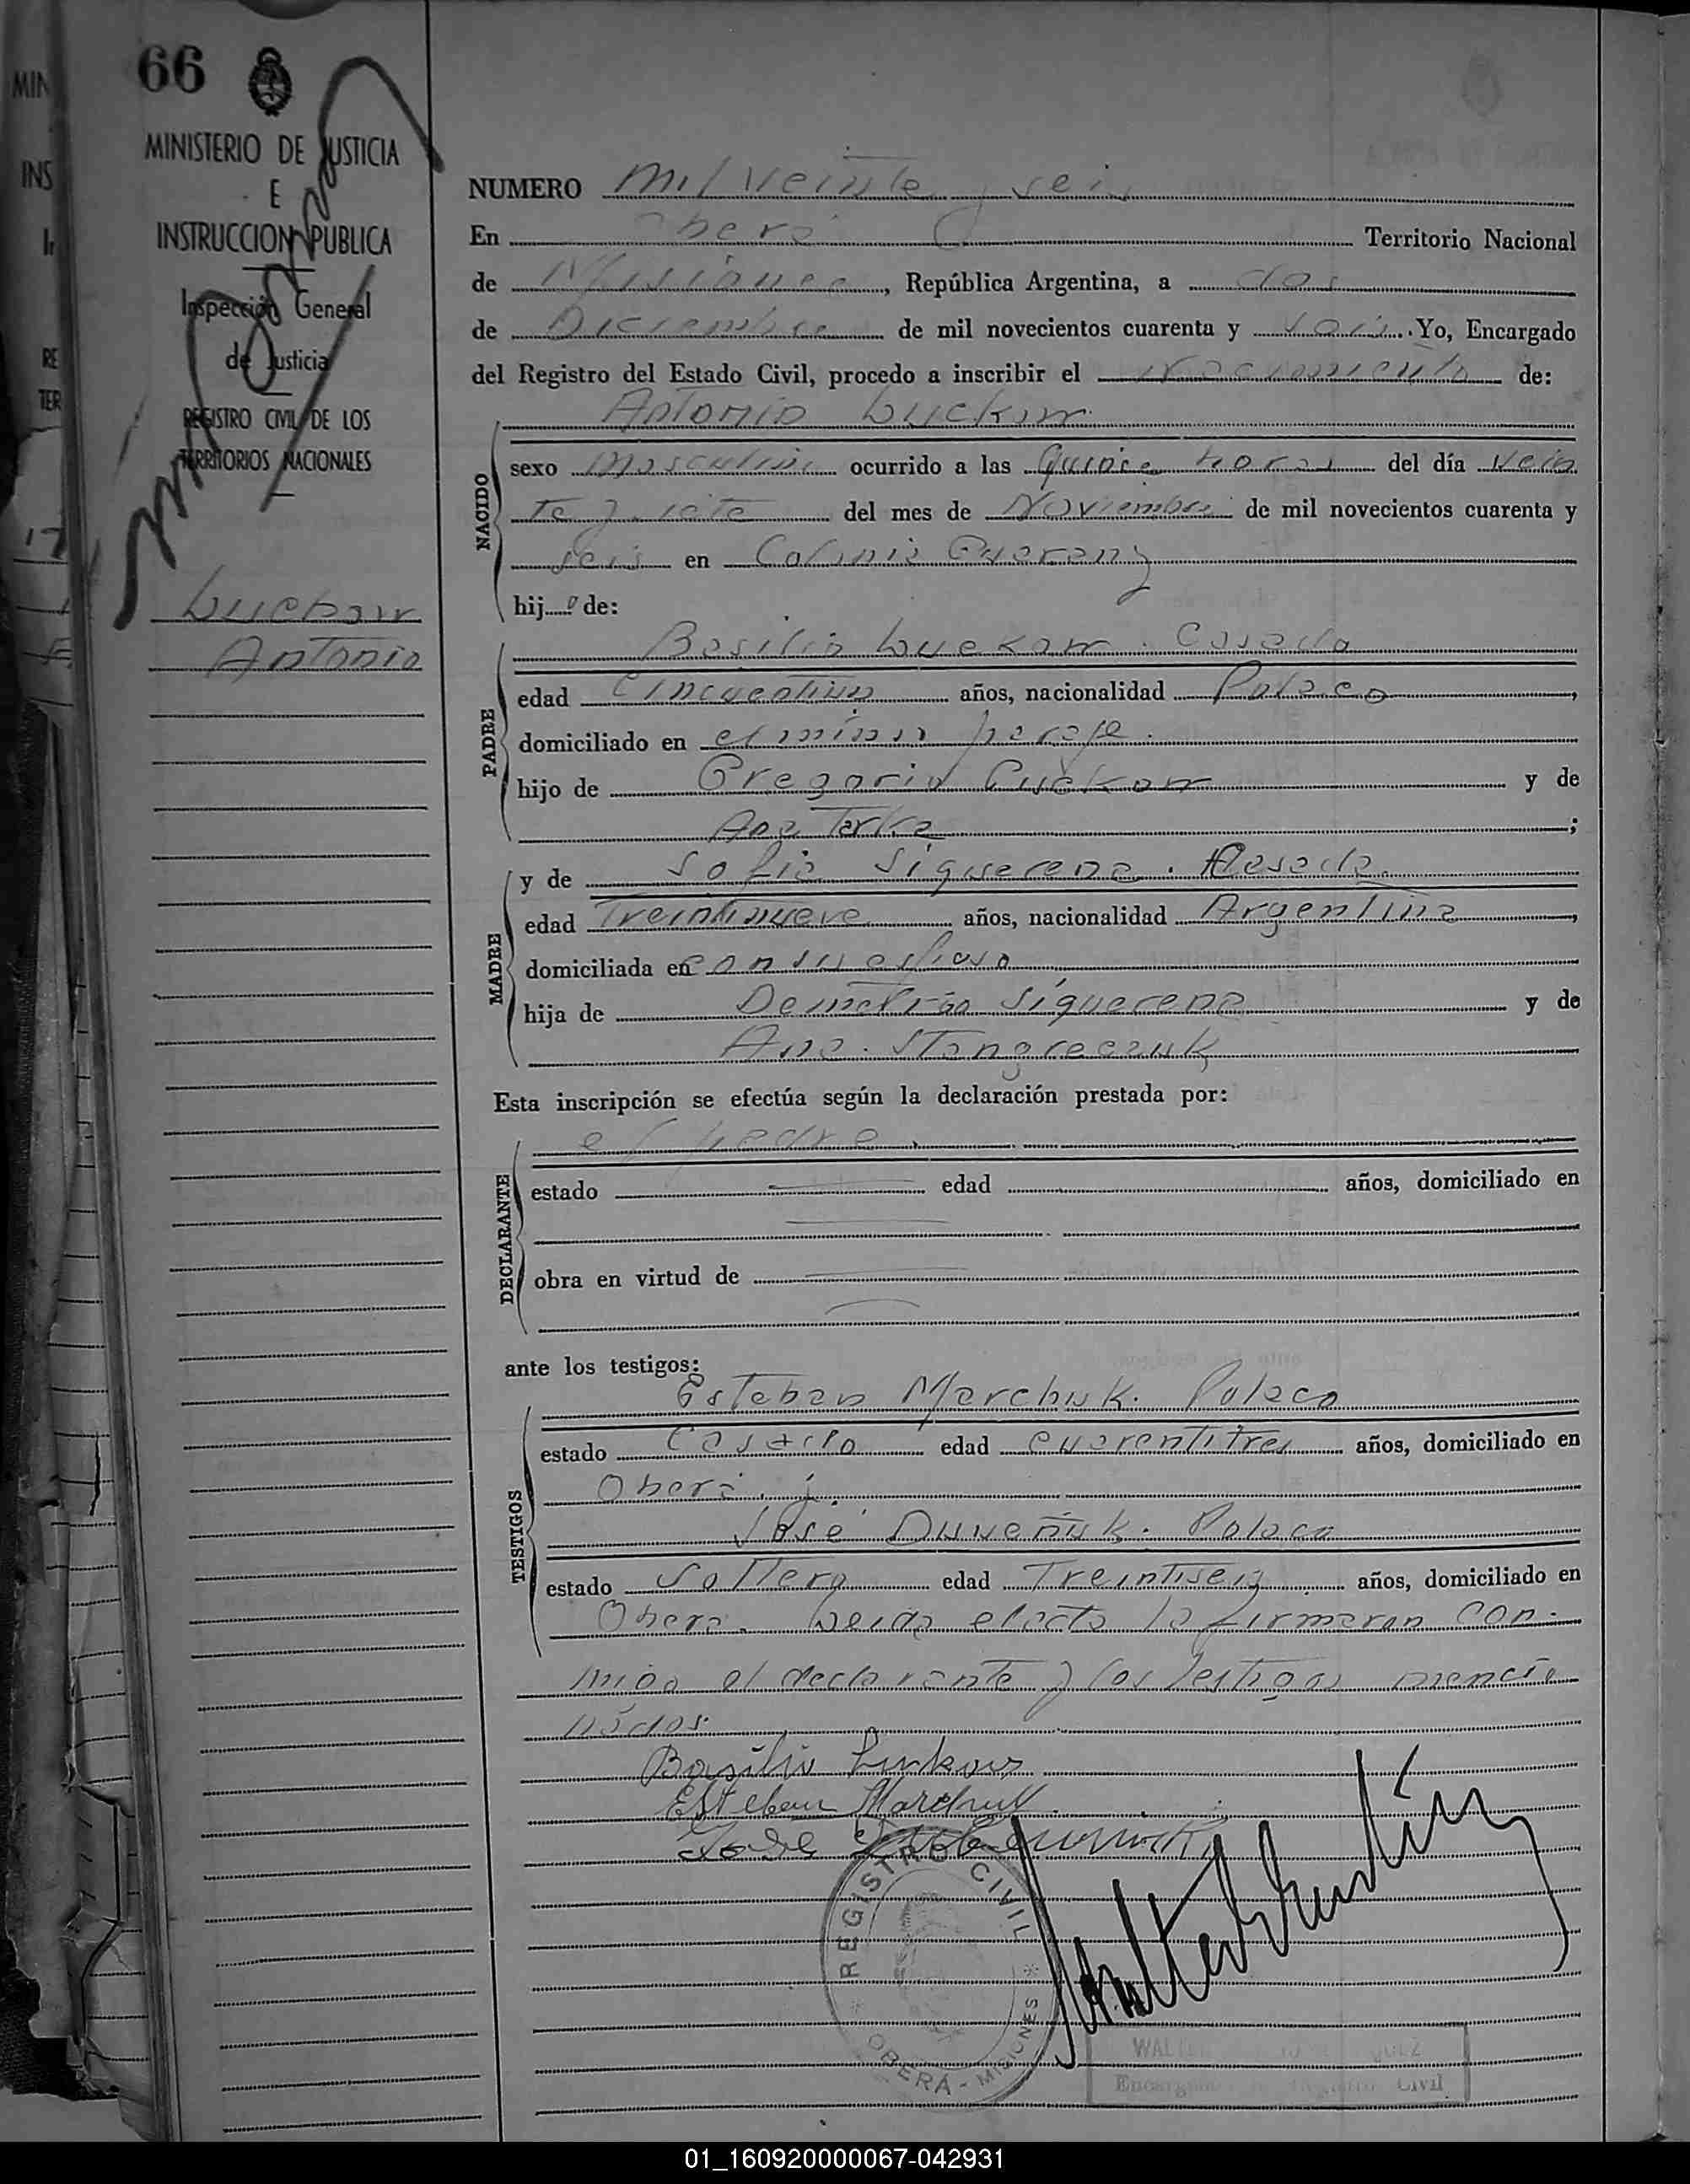 66
MINISTERIO DE JUSTICIA
E
INSTRUCCION PUBLICA
Inspección General
de Justicia
REGISTRO CIVIL DE LOS
TERRITORIOS NACIONALES
Luckow
Antonio
NUMERO mil veinte y seis
En Oberá Territorio Nacional
de Misiones, República Argentina, a dos
de Diciembre de mil novecientos cuarenta y seis. Yo, Encargado
del Registro del Estado Civil, procedo a inscribir el nacimiento de:
Antonio Luckow
NACIDO
sexo Masculino ocurrido a las Quince horas del día vein
te y siete del mes de Noviembre de mil novecientos cuarenta y
seis en Colonia Guarany
hijo de:
PADRE
Basilio Luckow. Casado
edad Cincuentiun años, nacionalidad Polaco,
domiciliado en el mismo paraje.
hijo de Gregorio Luckow y de
Ana Terka;
MADRE
y de Sofia Siguerena.
edad Treintinueve años, nacionalidad Argentina,
domiciliada en con su esposo
hija de Demetrio Siguerena y de
Ana. Stongreczuk
Esta inscripción se efectúa según la declaración prestada por:
DECLARANTE
el padre.
estado edad años, domiciliado en
obra en virtud de
ante los testigos:
TESTIGOS
Esteban Marchuk. Polaco
estado Casado edad cuarentitres años, domiciliado en
Oberá. y.
José Duveñuk. Polaco
estado Soltero edad Treintiseis años, domiciliado en
Oberá. Leida el acta la firmaron con-
migo el declarante y los testigos mencio
nados.
Basilio Lukow
Esteban Marchuk
Jose
REGISTRO CIVIL
OBERÁ - MISIONES
WALTER
Encargado Registro Civil
01_160920000067-042931